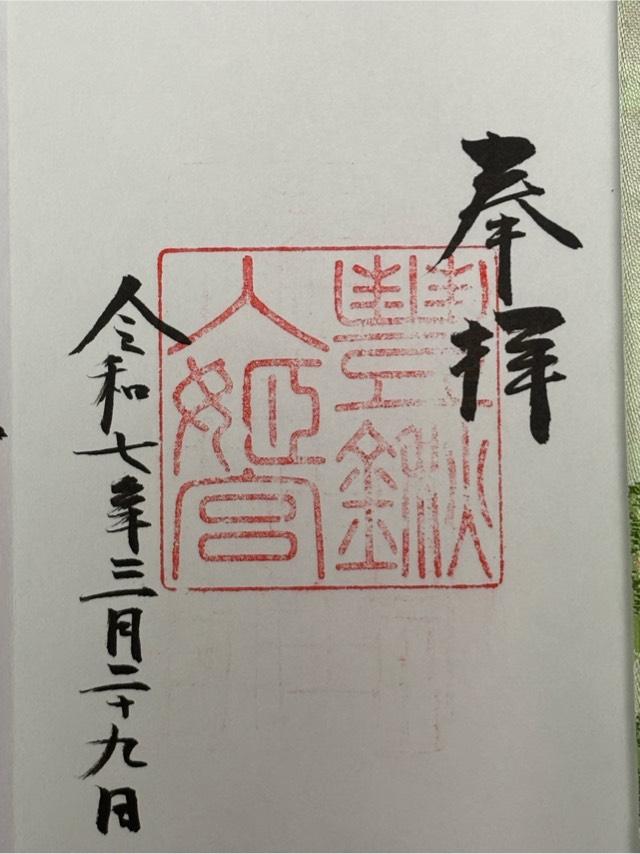 奉拝
豐鍬
入姫宮
令和七年三月二十九日